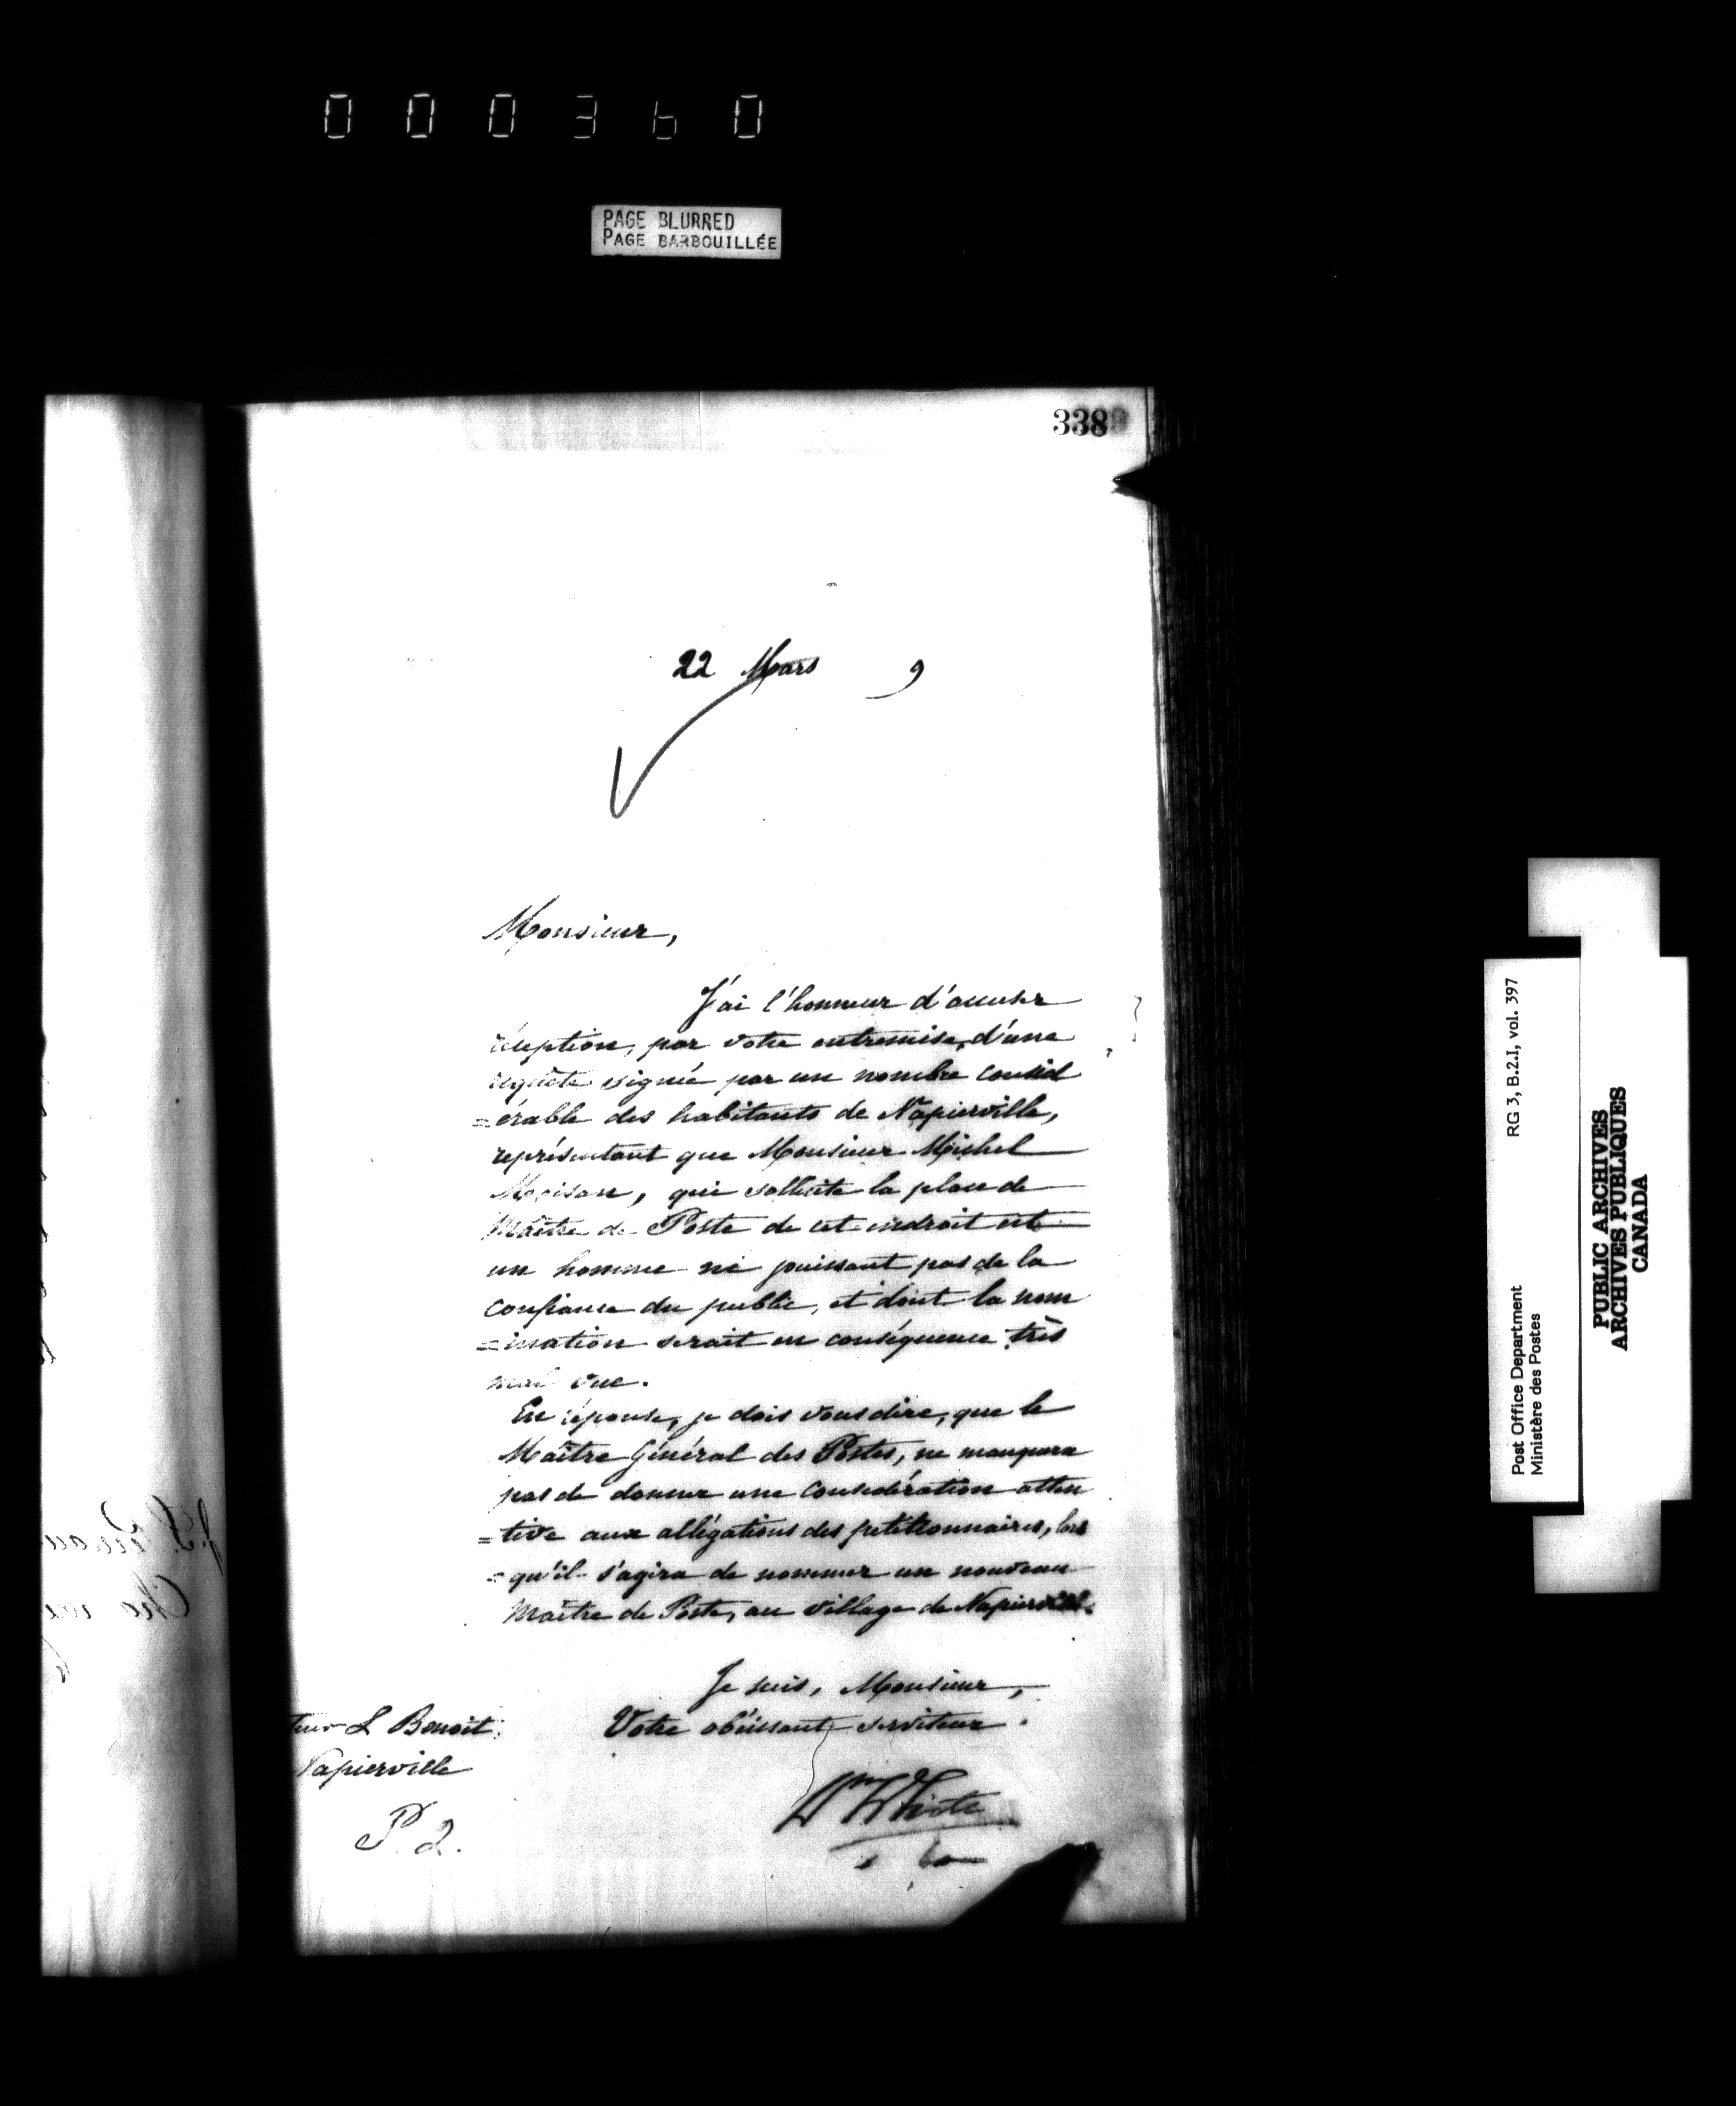 000360
PAGE BLURRED
PAGE BARBOUILLÉE
338
22 Mars 9
Monsieur,
J'ai l'honneur d'accuser
réception, par votre entremise, d'une
requête signée par un nombre consid
=érable des habitants de Napierville,
représentant que Monsieur Michel
qui sollicite la place de
Maître de Poste de cet endroit est
un homme ne jouissant pas de la
confiance du public, et dont la nom
=ination serait en conséquence très
mal vue.
En réponse, je dois vous dire, que le
Maître Général des Postes, ne manquera
pas de donner une considération atten
=tive aux allégations des petitionnaires, lors
=qu'il s'agira de nommer un nouveau
Maître de Poste, au village de Napierville.
Je suis, Monsieur,
Votre obéissant serviteur.
teur L Benoit
Napierville
P 2.
Wm White
RG 3, B.2.I, vol. 397
Post Office Department
Ministère des Postes
PUBLIC ARCHIVES
ARCHIVES PUBLIQUES
CANADA